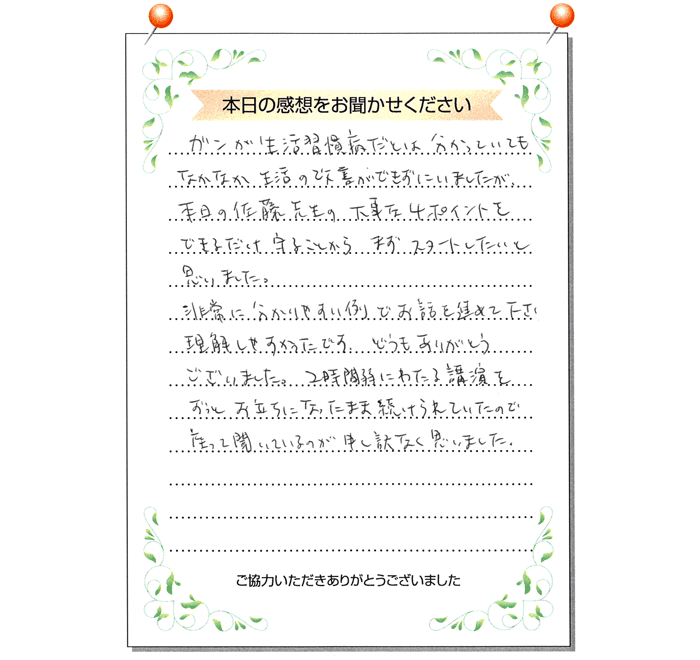 本日の感想をお聞かせください
ガンが生活習慣病だとは分かっていても
なかなか生活の改善ができずにいましたが、
本日の佐藤先生の大事な4ポイントを
できるだけ守ることから まずスタートしたいと
思いました。
非常に分かりやすい例でお話を進めて下さ
理解しやすかったです。どうもありがとう
ございました。2時間弱にわたる講演を
ずっとお立ちになったまま続けられていたので
座って聞いているのが申し訳なく思いました。
ご協力いただきありがとうございました